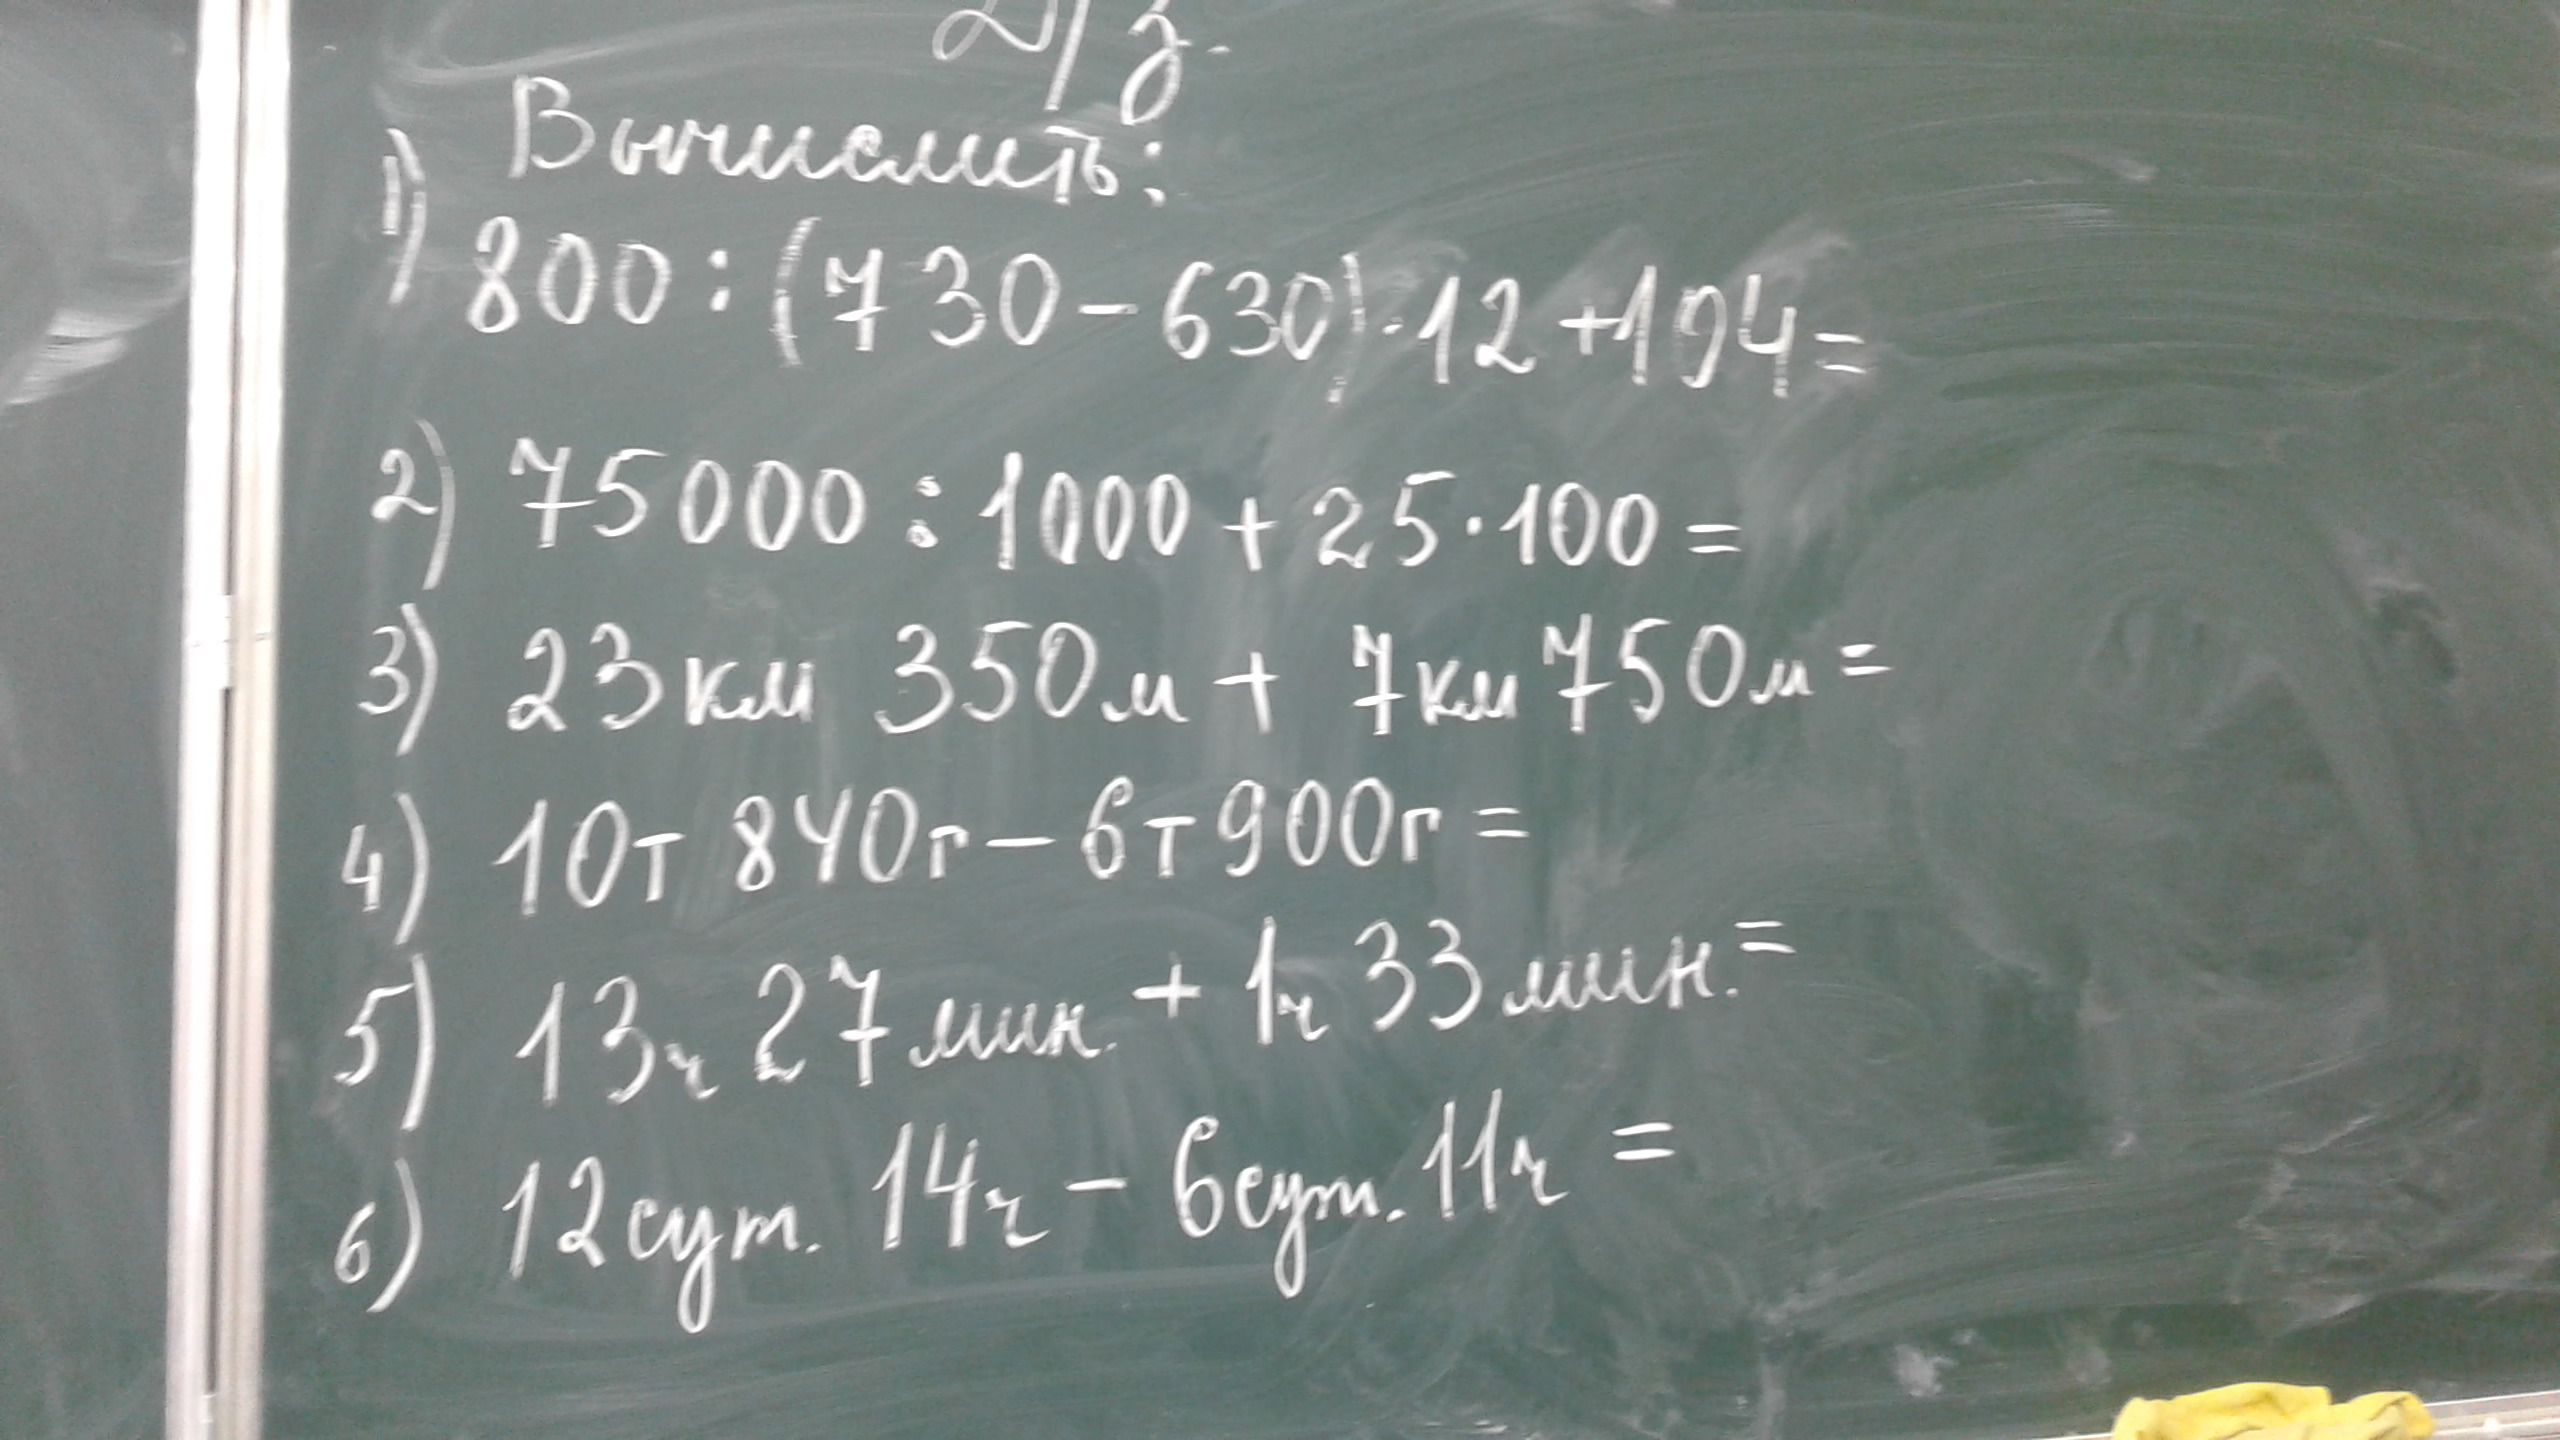 Д/з.
Вычислить:
1) 800 : (730 - 630) · 12 + 194 =
2) 75000 : 1000 + 25 · 100 =
3) 23км 350м + 7км 750м =
4) 10т 840г - 6т 900г =
5) 13ч 27мин. + 1ч 33мин. =
6) 12сут. 14ч - 6сут. 11ч =